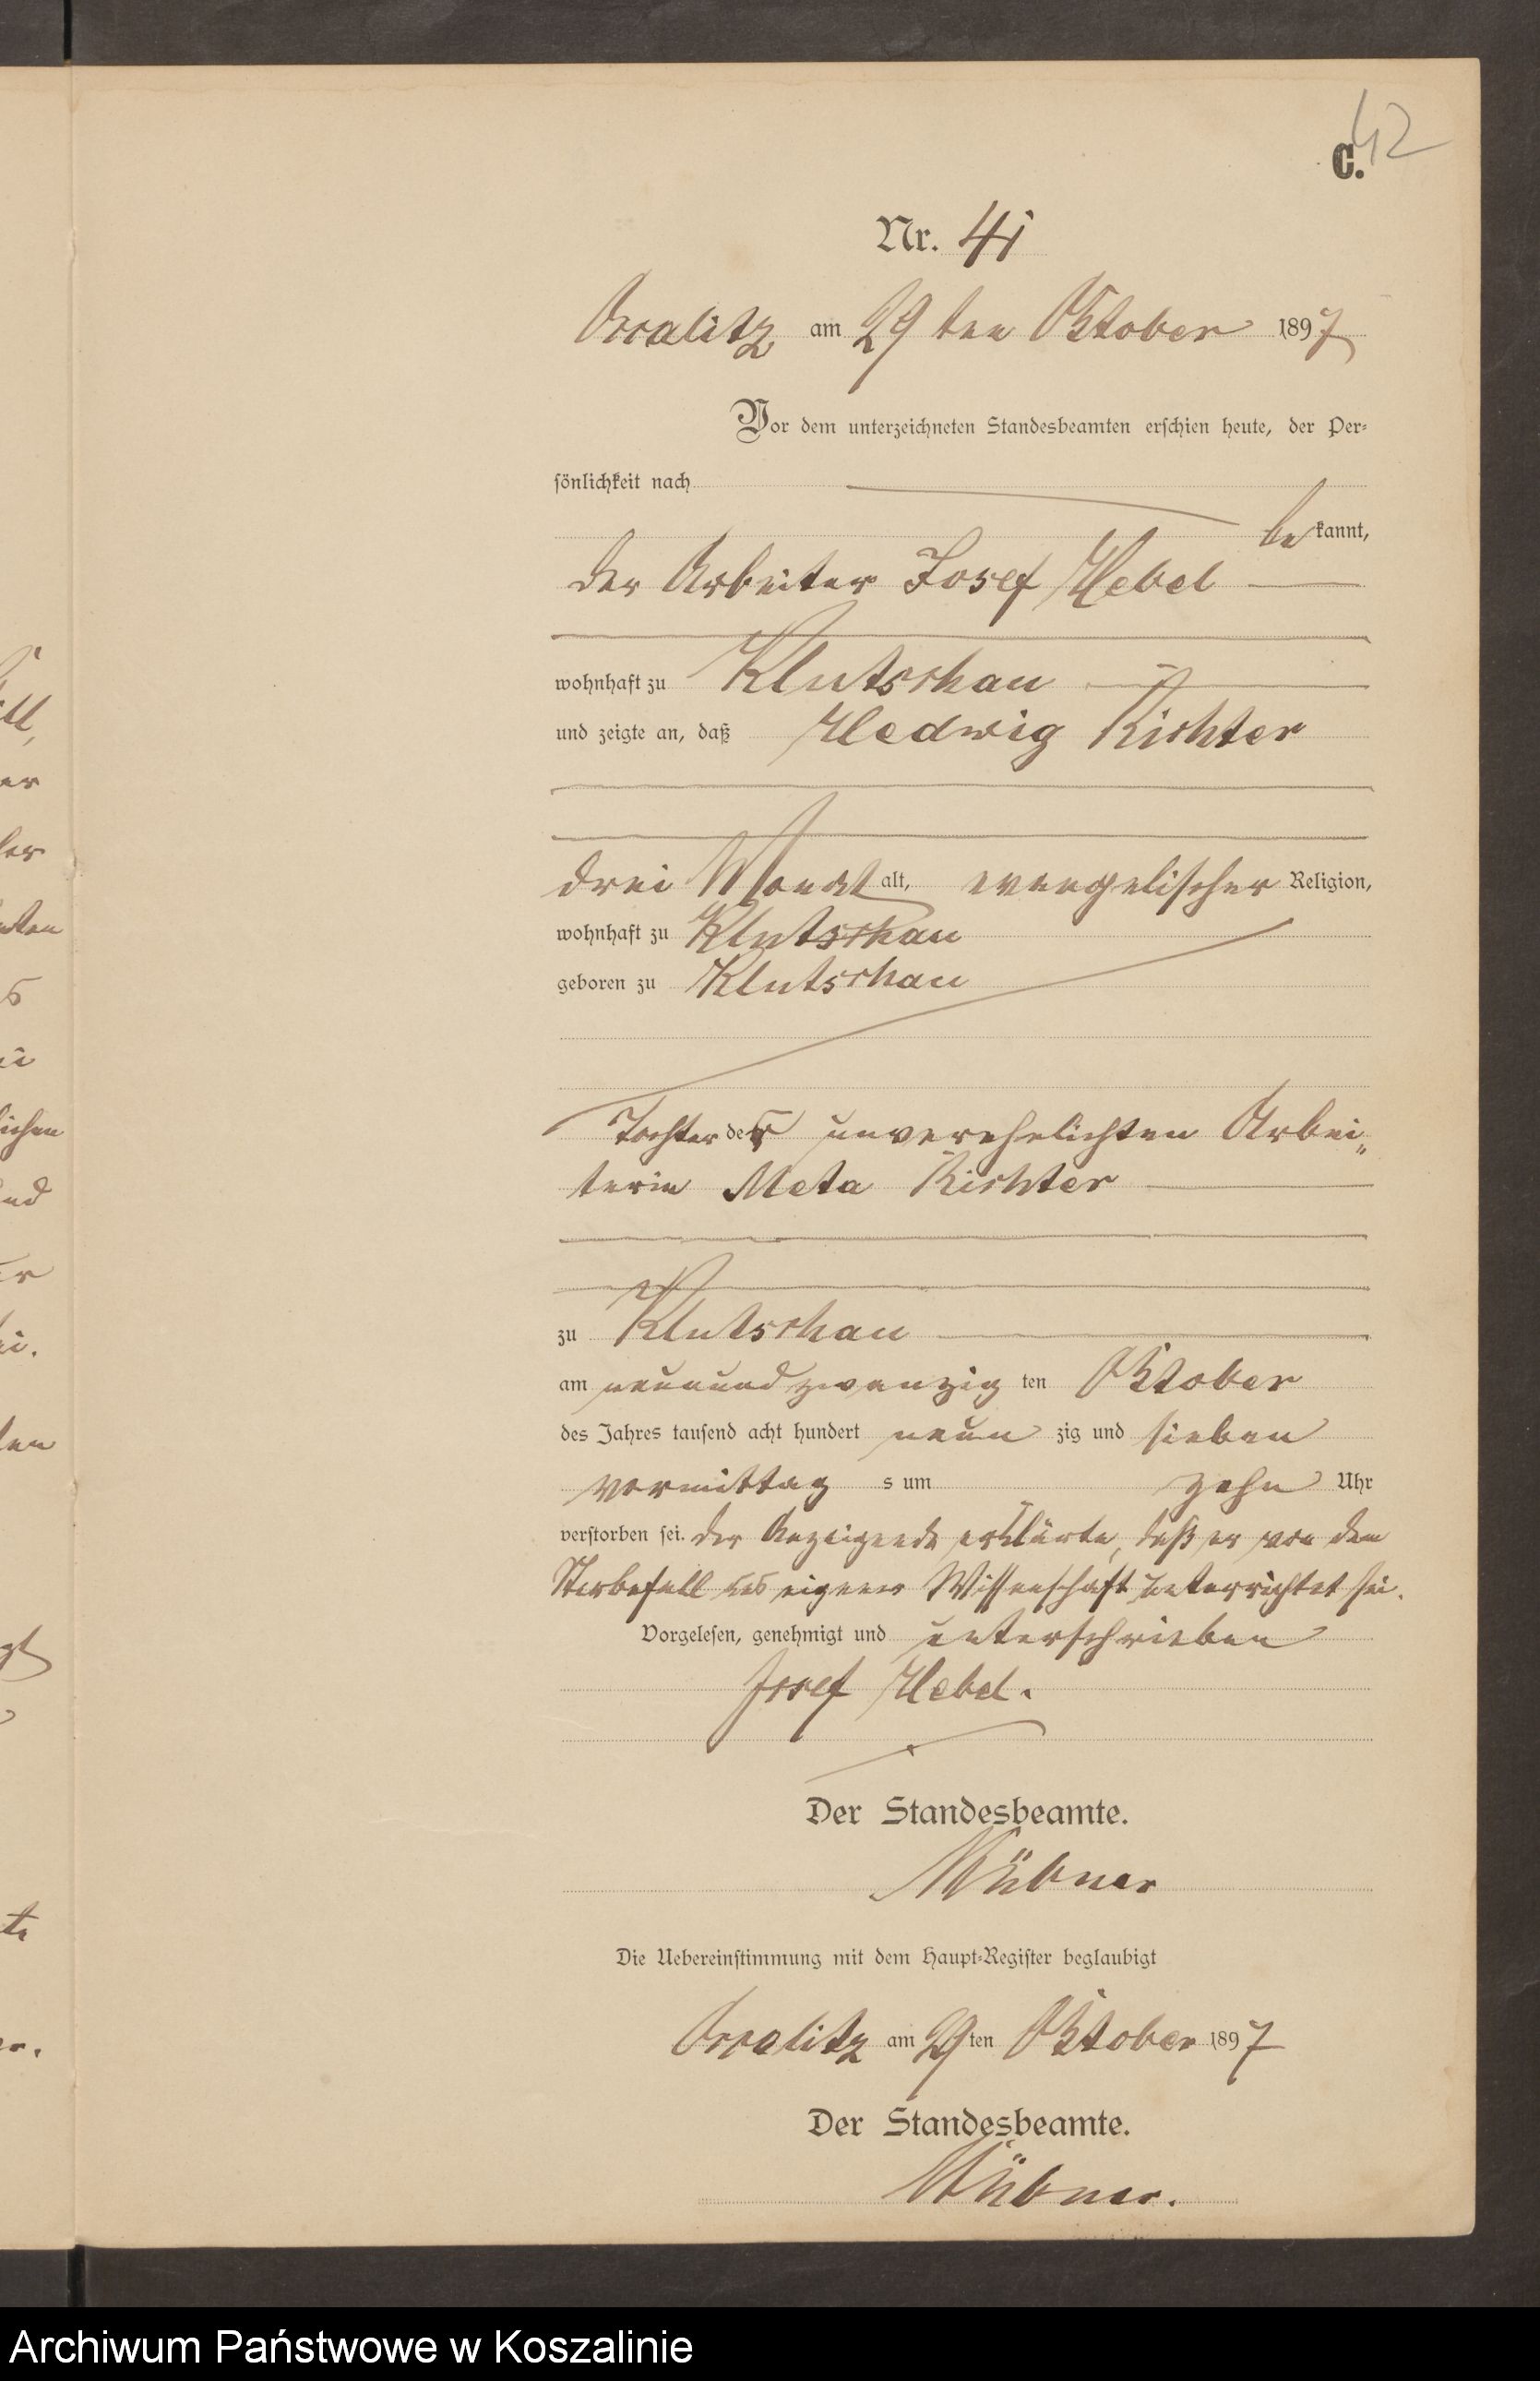 42
C.
Nr. 41
Ossalitz am 29 ten Oktober 1897
Vor dem unterzeichneten Standesbeamten erschien heute, der Per-
sönlichkeit nach
bekannt,
der Arbeiter Josef Hebel
wohnhaft zu Klutschau
und zeigte an, daß Hedwig Richter
drei Monat alt, evangelischer Religion,
wohnhaft zu Klutschau
geboren zu Klutschau
Tochter der unverehelichten Arbei-
terin Meta Richter
zu Klutschau
am neunundzwanzig ten Oktober
des Jahres tausend acht hundert neun zig und sieben
vormittag s um zehn Uhr
verstorben sei. Der Anzeigende erklärte, daß er von dem
Sterbefall aus eigener Wissenschaft unterrichtet sei.
Vorgelesen, genehmigt und unterschrieben
Josef Hebel.
Der Standesbeamte.
Die Uebereinstimmung mit dem Haupt-Register beglaubigt
Ossalitz am 29 ten Oktober 1897
Der Standesbeamte.
Archiwum Państwowe w Koszalinie